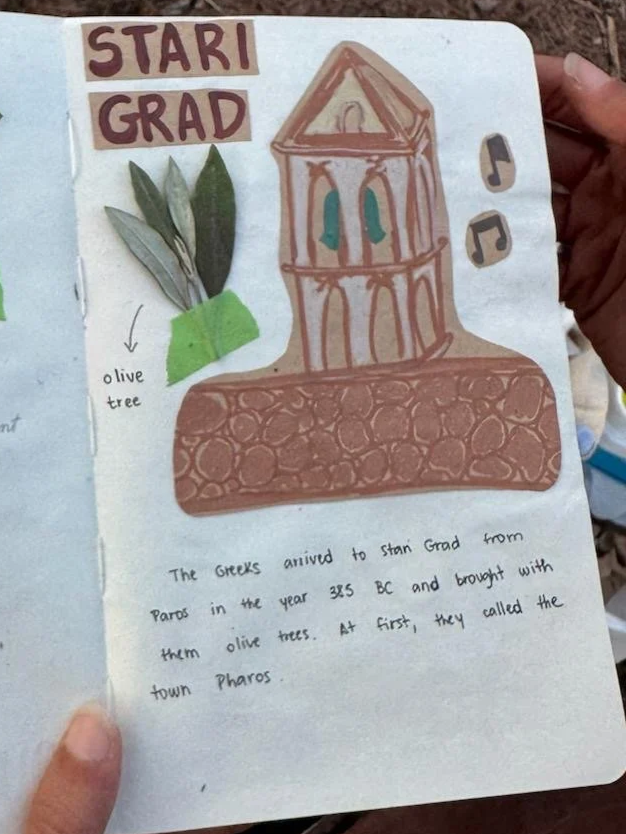 STARI
GRAD
olive
tree
The Greeks arrived to Stari Grad from
Paros in the year 385 BC and brought with
them olive trees. At first, they called the
town Pharos.